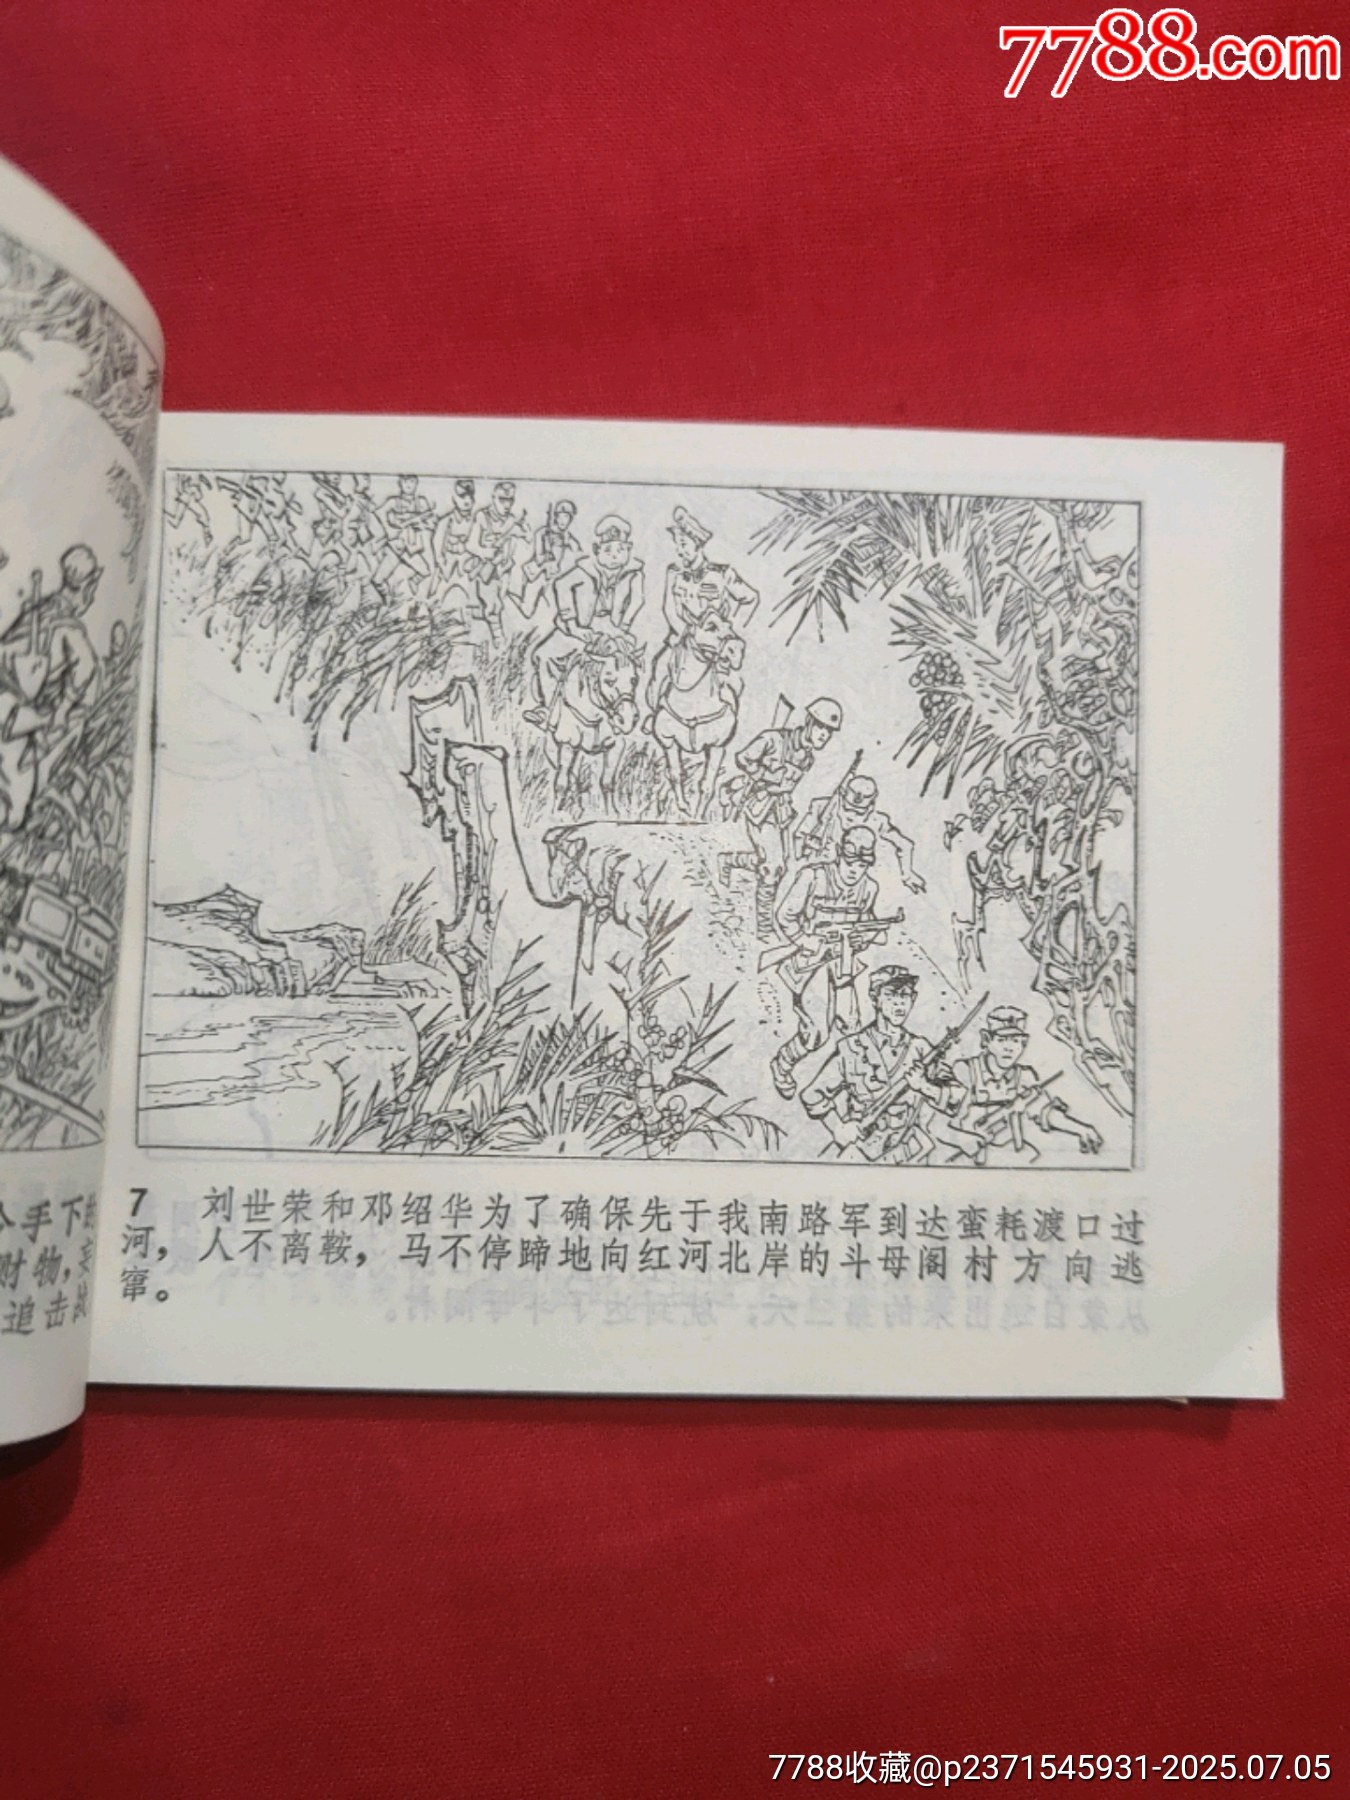 7788.com
手下
财物，
追击
7 刘世荣和邓绍华为了确保先于我南路军到达蛮耗渡口过
河，人不离鞍，马不停蹄地向红河北岸的斗母阁村方向逃
窜。
7788收藏@p2371545931-2025.07.05